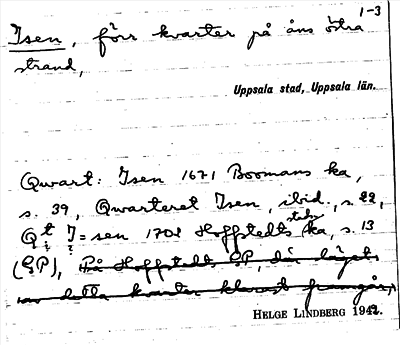 1-3
Isen, förr kvarter på åns östra
strand,
Uppsala stad, Uppsala län.
Qwart: Isen 1671 Boomans ka,
s. 39, Qwarteret Isen, ibid., s 22,
Qt I=sen 1702 Hoffstedts stads ka, s. 13
(GP), På Hoffstedts GP, där läget
av detta kvarter klarast framgår,
HELGE LINDBERG 1942.